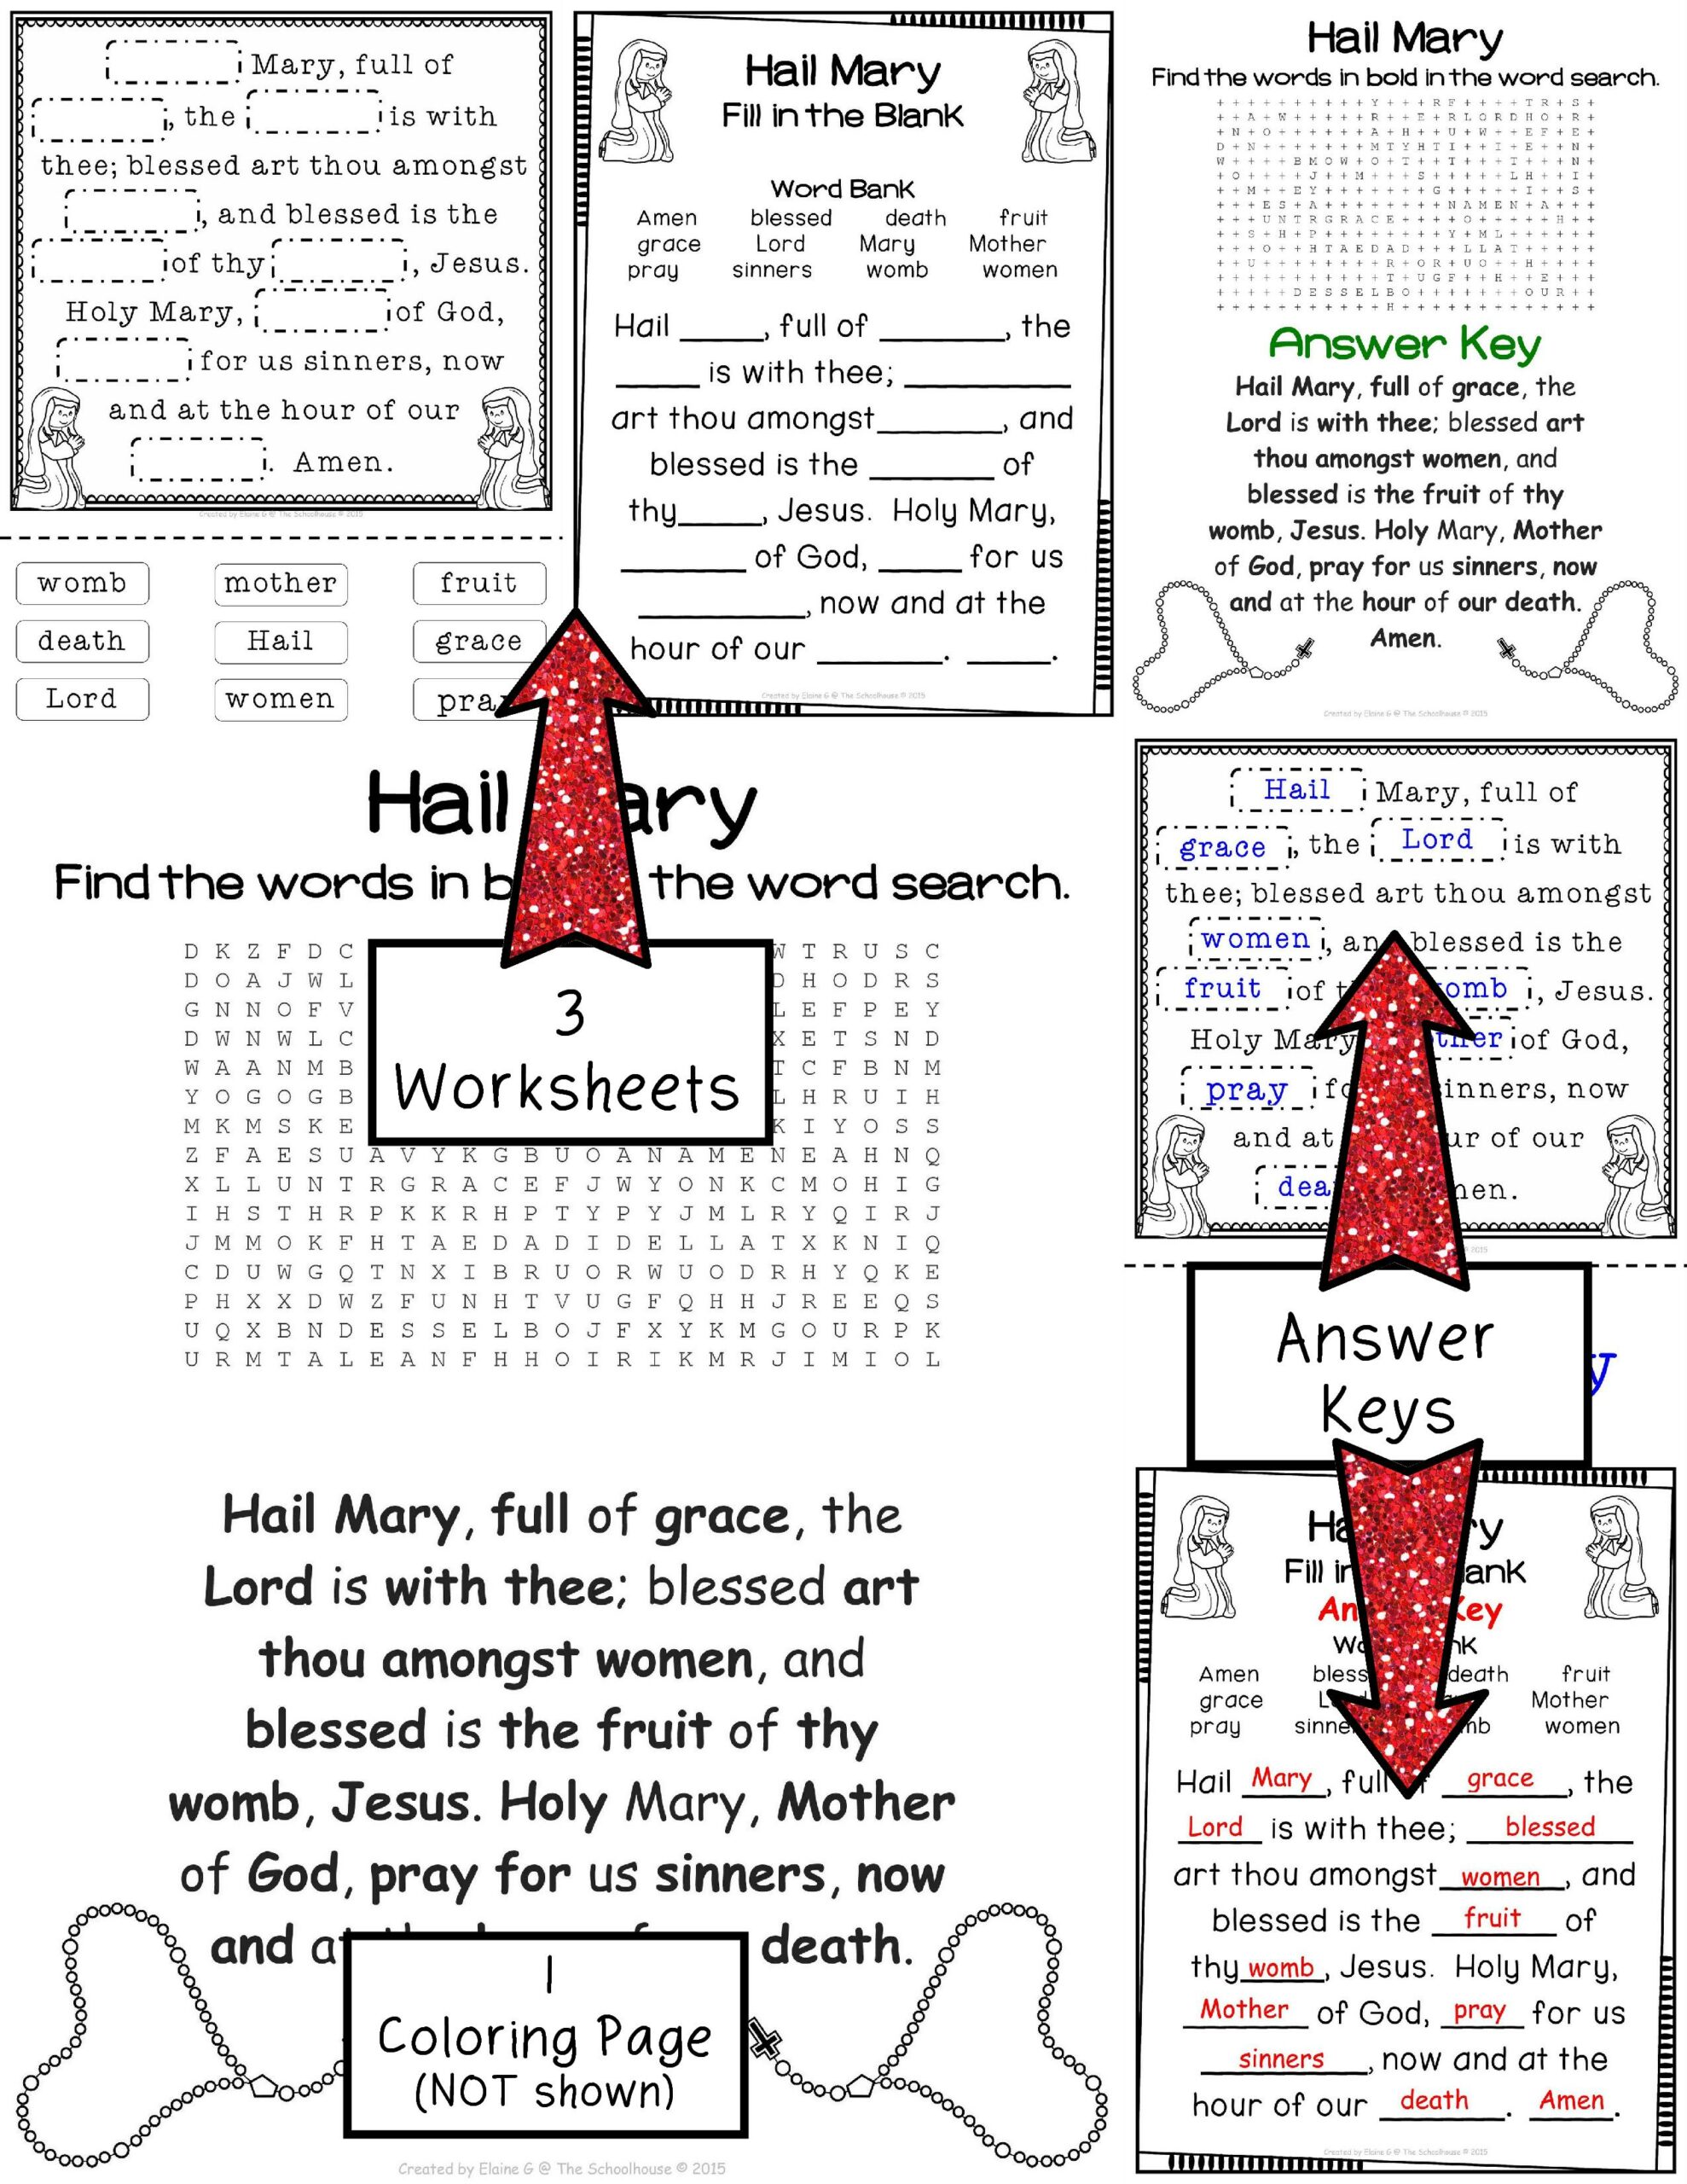 Mary, full of
, the is with
thee; blessed art thou amongst
, and blessed is the
of thy , Jesus.
Holy Mary, of God,
for us sinners, now
and at the hour of our
. Amen.
Created by Elaine G @ The Schoolhouse © 2015
womb mother fruit
death Hail grace
Lord women pray
Hail Mary
Fill in the Blank
Word Bank
Amen blessed death fruit
grace Lord Mary Mother
pray sinners womb women
Hail _____, full of _____, the
_____ is with thee; _____
art thou amongst _____, and
blessed is the _____ of
thy _____, Jesus. Holy Mary,
_____ of God, _____ for us
_____, now and at the
hour of our _____. _____.
Created by Elaine G @ The Schoolhouse © 2015
Hail Mary
Find the words in bold in the word search.
Answer Key
Hail Mary, full of grace, the
Lord is with thee; blessed art
thou amongst women, and
blessed is the fruit of thy
womb, Jesus. Holy Mary, Mother
of God, pray for us sinners, now
and at the hour of our death.
Amen.
Created by Elaine G @ The Schoolhouse © 2015
Hail ary
Find the words in b the word search.
D K Z F D C W T R U S C
D O A J W L D H O D R S
G N N O F V L E F P E Y
D W N W L C X E T S N D
W A A N M B T C F B N M
Y O G O G B L H R U I H
M K M S K E K I Y O S S
Z F A E S U A V Y K G B U O A N A M E N E A H N Q
X L L U N T R G R A C E F J W Y O N K C M O H I G
I H S T H R P K K R H P T Y P Y J M L R Y Q I R J
J M M O K F H T A E D A D I D E L L A T X K N I Q
C D U W G Q T N X I B R U O R W U O D R H Y Q K E
P H X X D W Z F U N H T V U G F Q H H J R E E Q S
U Q X B N D E S S E L B O J F X Y K M G O U R P K
U R M T A L E A N F H H O I R I K M R J I M I O L
3
Worksheets
Hail Mary, full of grace, the
Lord is with thee; blessed art
thou amongst women, and
blessed is the fruit of thy
womb, Jesus. Holy Mary, Mother
of God, pray for us sinners, now
and at death.
1
Coloring Page
(NOT shown)
Created by Elaine G @ The Schoolhouse © 2015
Hail Mary, full of
grace, the Lord is with
thee; blessed art thou amongst
women, an blessed is the
fruit of t omb, Jesus.
Holy Mary ther of God,
pray fo inners, now
and at ur of our
dea men.
2015
Answer
Keys
y
Ha y
Fill in ank
An Key
Wo nk
Amen bless death fruit
grace L Mother
pray sinne mb women
Hail Mary, full grace, the
Lord is with thee; blessed
art thou amongst women, and
blessed is the fruit of
thy womb, Jesus. Holy Mary,
Mother of God, pray for us
sinners, now and at the
hour of our death. Amen.
Created by Elaine G @ The Schoolhouse © 2015